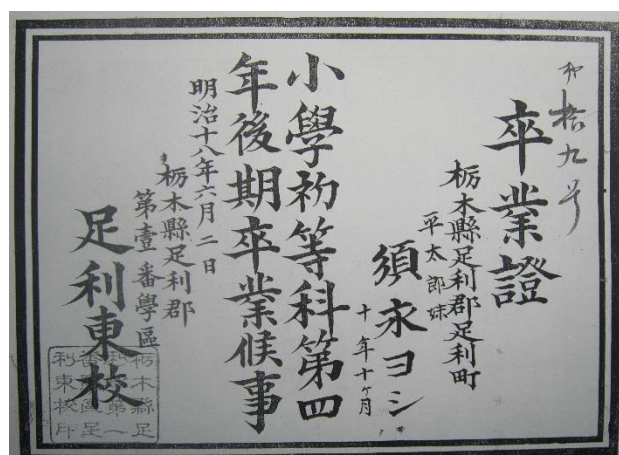 第拾九号
卒業證
栃木縣足利郡足利町
平太郎妹
須永ヨシ
十年十ヶ月
小學初等科第四
年後期卒業候事
明治十八年六月二日
栃木縣足利郡
第壹番學區
足利東校
栃木縣足
利郡第一
番學區足
利東校印